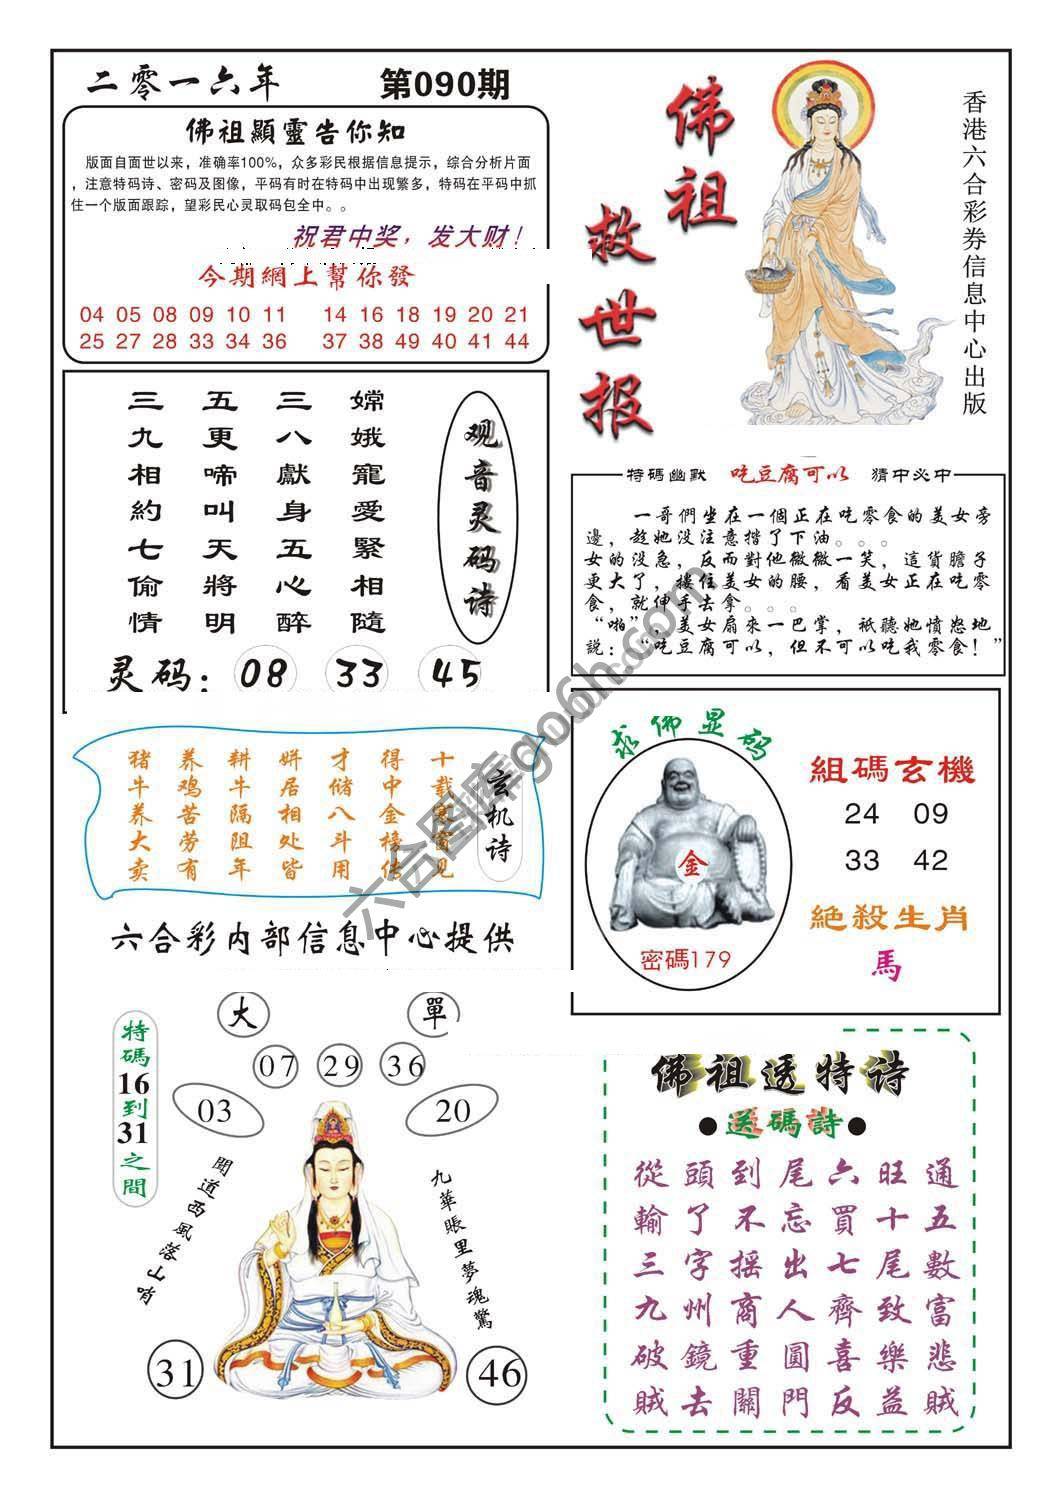 二零一六年
第090期
佛祖顯靈告你知
版面自面世以来，准确率100%，众多彩民根据信息提示，综合分析片面
，注意特码诗、密码及图像，平码有时在特码中出现繁多，特码在平码中抓
住一个版面跟踪，望彩民心灵取码包全中。。
祝君中奖，发大财！
今期網上幫你發
04 05 08 09 10 11 14 16 18 19 20 21
25 27 28 33 34 36 37 38 49 40 41 44
佛祖
救世报
香港六合彩券信息中心出版
观音灵码诗
嫦娥寵愛緊相隨
三八獻身五心醉
五更啼叫天將明
三九相約七偷情
灵码：08 33 45
特碼幽默 吃豆腐可以 猜中必中
一哥們坐在一個正在吃零食的美女旁
邊，趁她没注意揩了下油。。。
女的没急，反而對他微微一笑，這貨膽子
更大了，摟住美女的腰，看美女正在吃零
食，就伸手去拿。。。
“啪”，美女扇來一巴掌，祇聽她憤怒地
説：“吃豆腐可以，但不可以吃我零食！”
玄机诗
十載寒窗見
得中金榜传
才储八斗用
姘居相处皆
耕牛隔阻年
养鸡苦劳有
猪牛养大卖
六合彩内部信息中心提供
求佛显码
金
密碼179
組碼玄機
24 09
33 42
絶殺生肖
馬
特碼16到31之間
大 單
07 29 36
03 20
聞道西風落山哨
九華賬里夢魂驚
31 46
佛祖透特诗
●送碼詩●
從頭到尾六旺通
輸了不忘買十五
三字摇出七尾數
九州商人齊致富
破鏡重圓喜樂悲
賊去關門反益賊
六合图库go6h.com